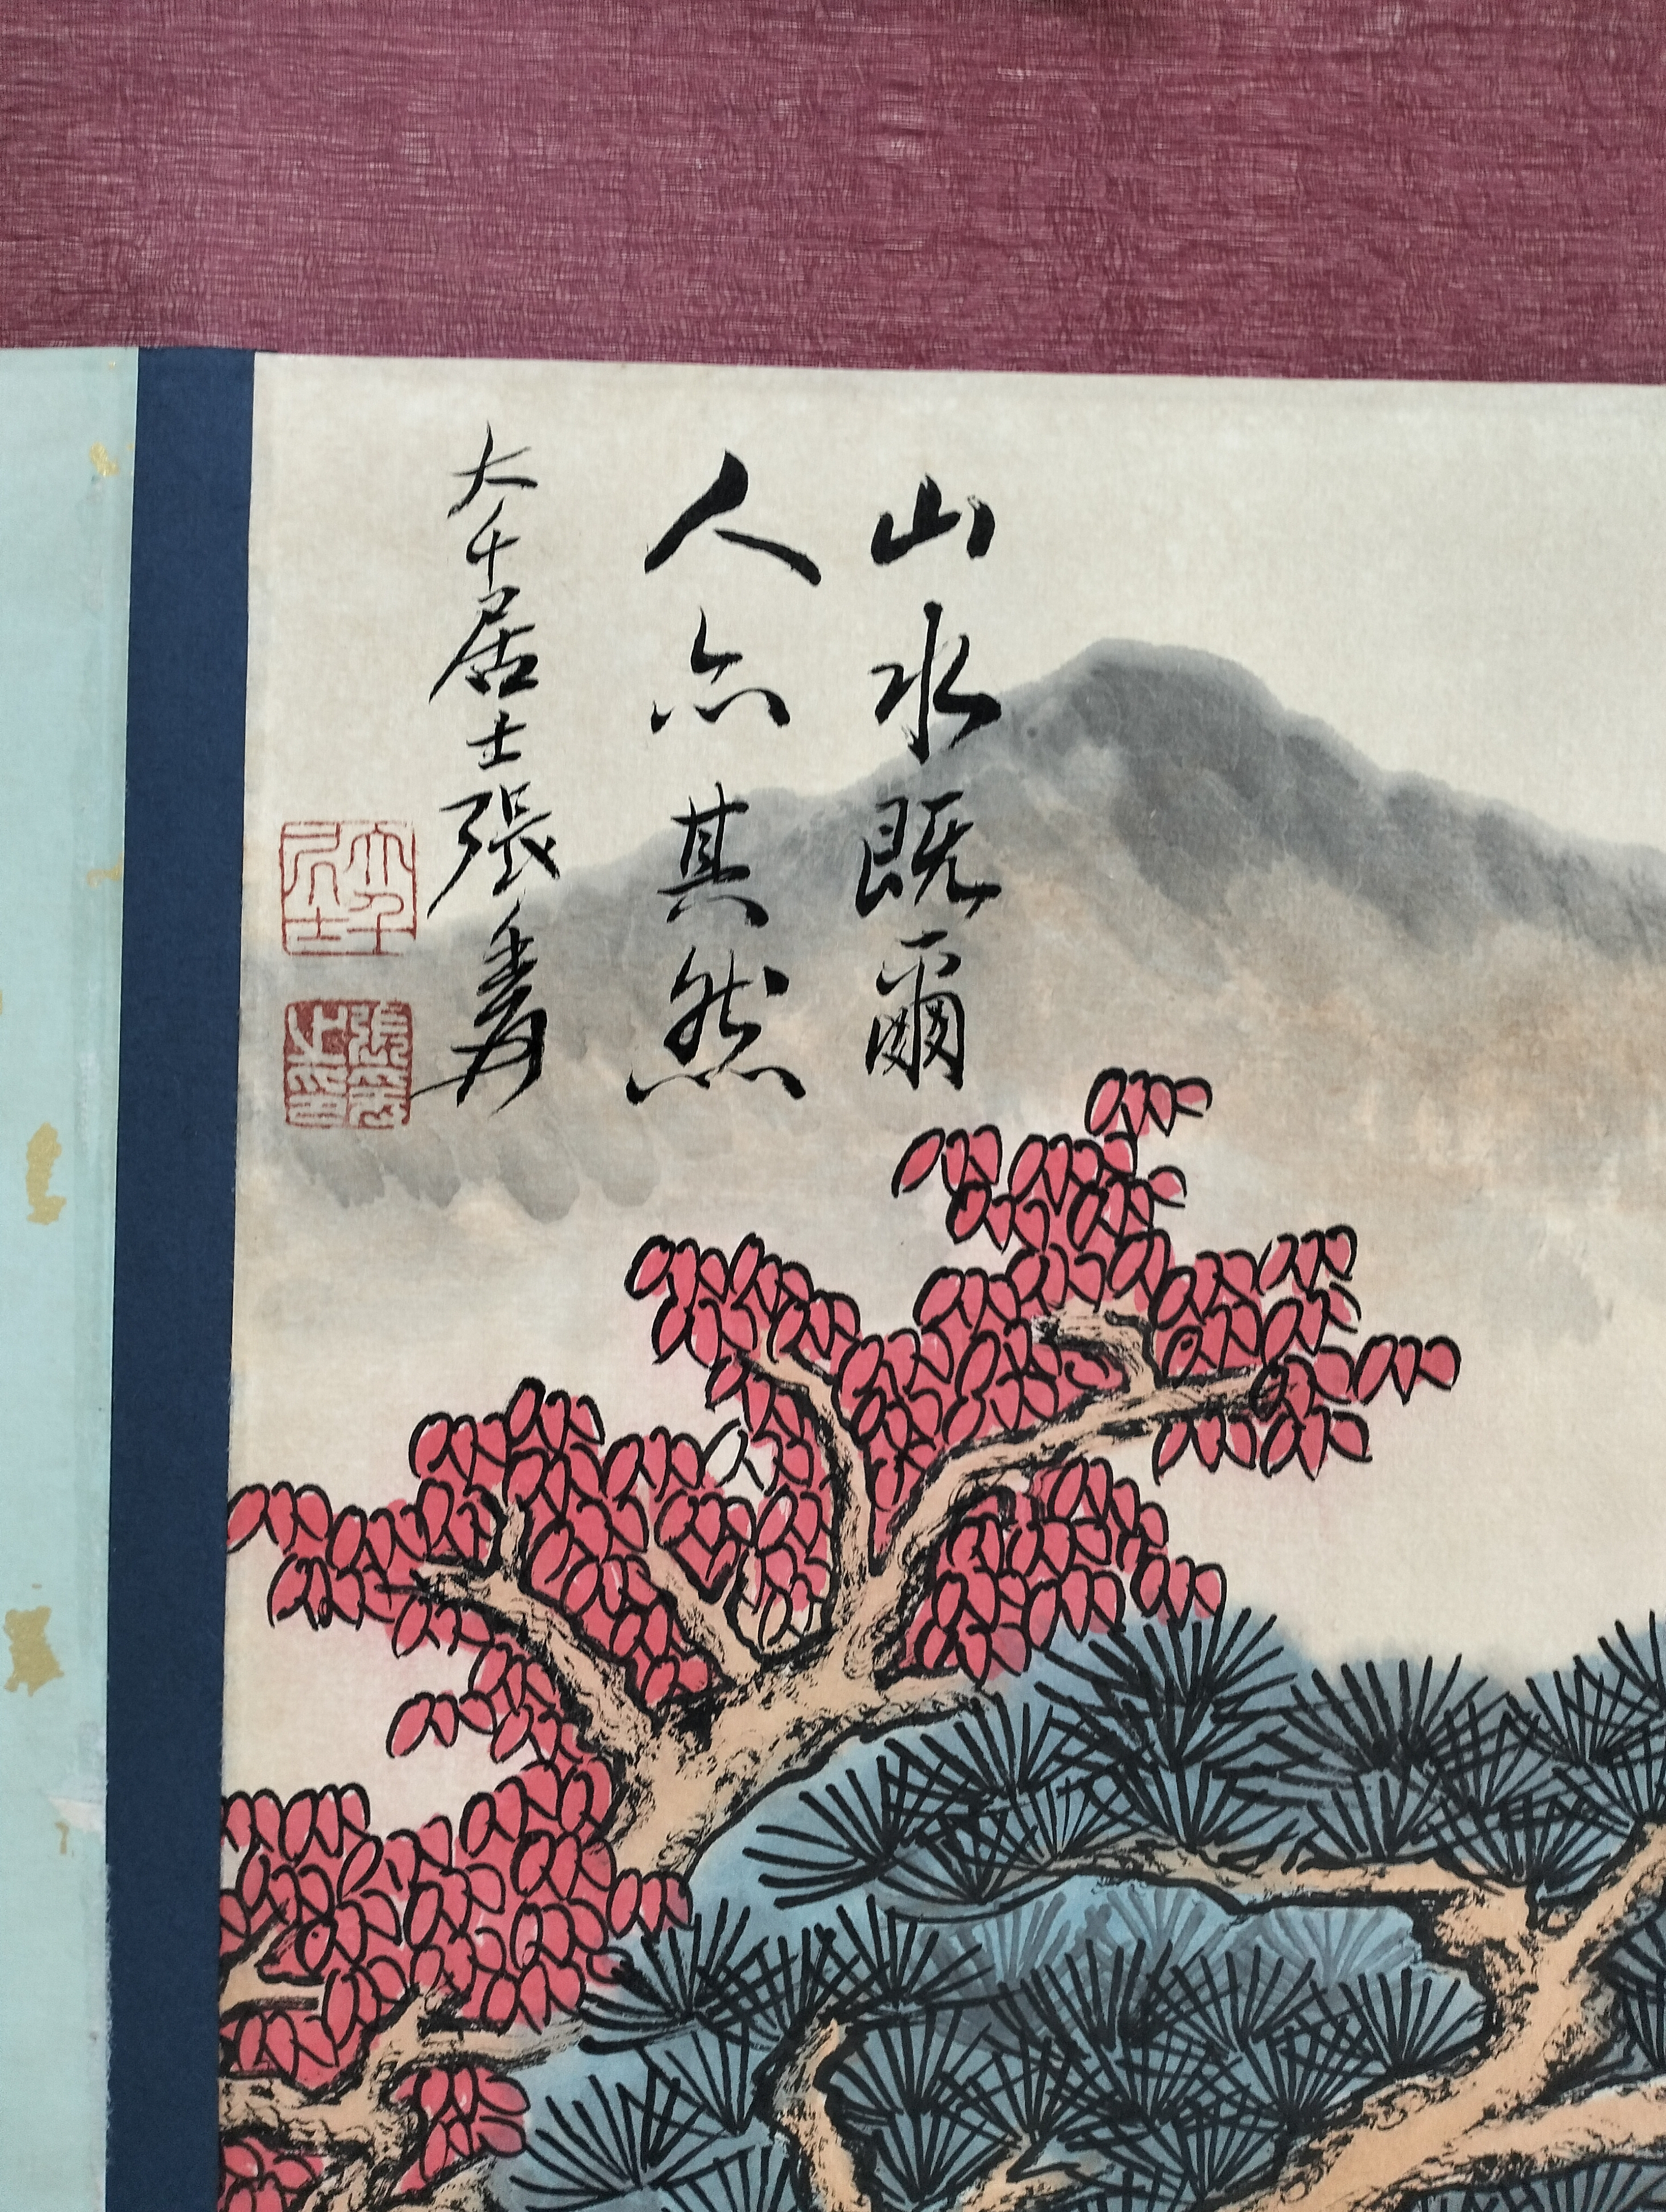 山水既爾
人亦其然
大千居士張爰
大千居士
張爰之印